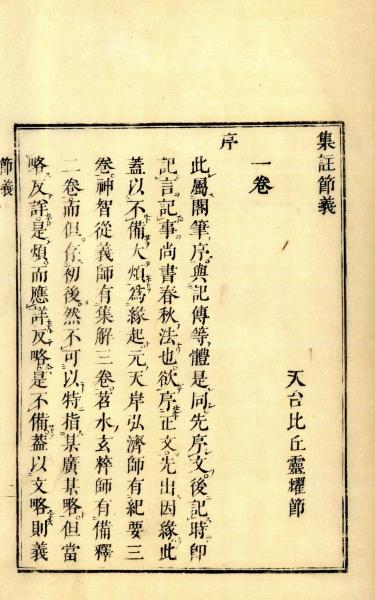 集註節義
天台比丘靈耀節
一卷
序
此屬閣筆序與記傳等體是同先序文後記時卽
記言記事尚書春秋法也欲序正文先出因緣此
蓋以不備大煩爲緣起元天岸弘濟師有紀要三
卷神智從義師有集解三卷苕水玄粹師有備釋
二卷而但存初後然不可以特指某廣某略但當
略反詳是煩而應詳反略是不備蓋以文略則義
節義